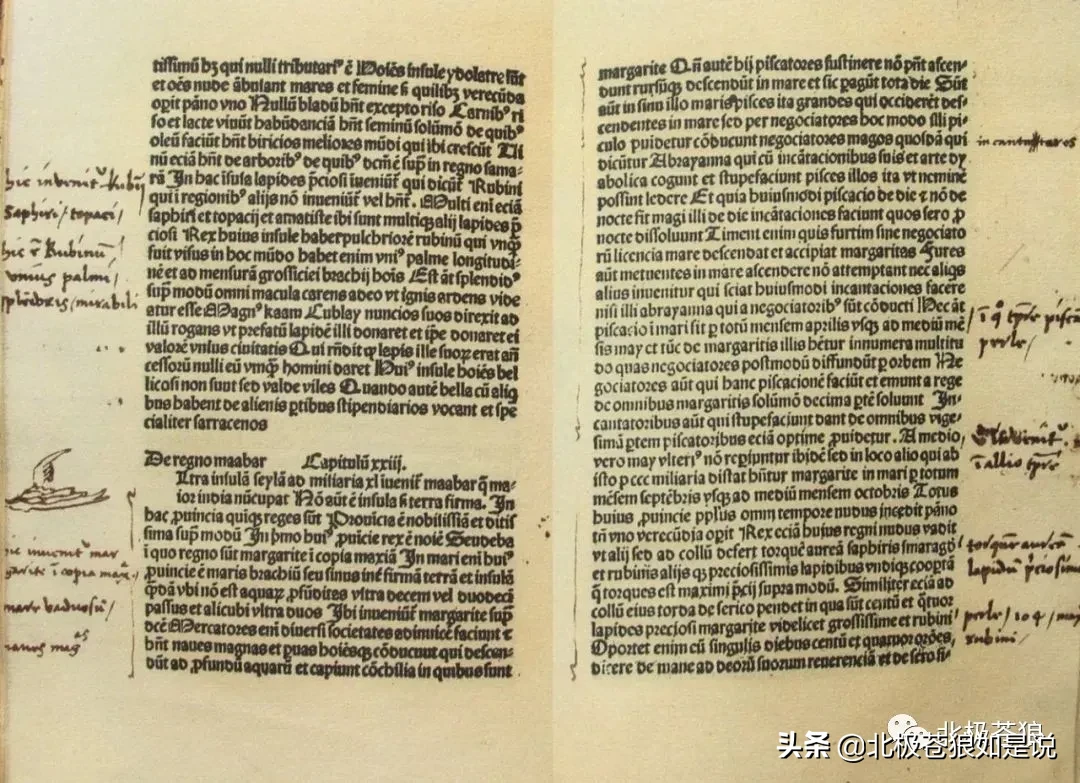 tissimū bꝫ qui nulli tributariꝰ ē Hoiēs insule ydolatre sūt
et oēs nude ābulant mares et femine sꝫ quilibꝫ verecūda
opit pāno vno Nullū bladū hñt excepto riso Carnibꝰ ri
so et lacte viuūt habūdanciā hñt seminū solūmō de quibꝰ
oleū faciūt hñt biricios meliores mūdi qui ibi crescūt Vi
nū eciā hñt de arboribꝰ de quibꝰ dcm̄ ē supͣ in regno sama
rā In hac īsula lapides p̄ciosi īueniūt᷑ qui dicūt᷑ Rubini
qui ī regionibꝰ alijs nō inueniūt᷑ vel hñt᷑. Multi eni eciā
saphiri et topacij et amatiste ibi sunt multiqꝫ alij lapides p̄
ciosi Rex huius insule habet pulchriorē rubinū qui vnqꝫ
fuit visus in hoc mūdo habet enim vniꝰ palme longitudi
nē et ad mensurā grossiciei brachij hois Est āt splendidꝰ
supͣ modū omni macula carens adeo vt ignis ardens vide
atur esse Magnꝰ kaam Cublay nuncios suos direxit ad
illū rogans vt prefatū lapidē illi donaret et ip̄e donaret ei
valorē vnius ciuitatis Qui rn̄dit ꝙ lapis ille suoꝝ erat an
cessorū nulli eū vnqꝫ homini daret Huiꝰ insule hoiēs bel
licosi non sunt sed valde viles Quando autē bella cū aliq
bus habent de alienis ꝑtibus stipendiarios vocant et spe
cialiter sarracenos
De regno maabar Capitulū xxiij.
Vltra insulā seylā ad miliaria xl īuenit᷑ maabar q̄ ma
ior india nūcupat᷑ Nō aūt ē insula sꝫ terra firma. In
hac ꝓuincia quiqꝫ reges sūt Prouicia ē nobilissīa et diti
sima supͣ modū In pͥmo huiꝰ ꝓuicie rex ē noīe Seudeba
ī quo regno sūt margarite ī copia maxīa In mari eni huiꝰ
ꝓuincie ē maris brachiū seu sinus inē firmā terrā et insulā
qͣdā vbi nō est aquaꝝ ꝓfūdites vltra decem vel duodecī
passus et alicubi vltra duos Ibi īueniūt᷑ margarite supͣ
dcē Mercatores eni diuersi societates adinuicē faciunt ⁊
hñt naues magnas et paruas hoiēsqꝫ cōducunt qui descen
dūt ad ꝓfundū aquarū et capiunt cōchilia in quibus sunt
hic invenit᷑ Rubinj
Saphiri / topaci /
hic ē Rubinū /
vnius palmi /
splēdoris / mirabili
hic inveniūt᷑ mar
garite ī copia maxª
mare vadosū /
margarite Qn̄ autē hij piscatores sustinere nō pn̄t ascen
dunt rursūqꝫ descendūt in mare et sic ꝑagūt tota die Sūt
aūt in sinu illo maris pisces ita grandes qui occiderēt des
cendentes in mare sed per negociatores hoc modo illi pi
culo ꝓuidetur cōducunt negociatores magos quosdā qui
dicūtur Abrayanna qui cū incātacionibus suis et arte dy
abolica cogunt et stupefaciunt pisces illos ita vt neminē
possunt ledere Et quia huiusmodi piscacio de die ⁊ nō de
nocte fit magi illi de die incātaciones faciunt quos sero ꝓ
nocte dissoluunt Timent enim quis furtim sine negociato
rū licencia mare descendat et accipiat margaritas Fures
aūt metuentes in mare ascendere nō attemptant nec aliqs
alius inuenitur qui sciat huiusmodi incantaciones facere
nisi illi abrayanna qui a negociatoribꝰ sūt cōducti Hec āt
piscacio ī mari fit ꝑ totū mensem aprilis vsqꝫ ad mediū mē
sis may et tūc de margaritis illis hētur innumera multitu
do quas negociatores postmodū diffundūt ꝑ orbem Ne
gociatores aūt qui hanc piscacionē faciūt et emunt a rege
de omnibus margaritis solūmō decima ꝑtē soluunt In
cantatoribus aūt qui stupefaciunt dant de omnibus vige
simā ꝑtem piscatoribus eciā optime ꝓuidetur. A medio
vero may vlteriꝰ nō reꝑiuntur ibidē sed in loco alio qui ab
isto ꝑ ccc miliaria distat hñtur margarite in mari ꝑ totum
mēsem septēbris vsqꝫ ad mediū mensem octobris Totus
huius ꝓuincie pplus omni tempore nudus incedit pāno
tn̄ vno verecūdia opit Rex eciā huius regni nudus vadit
vt alij sed ad collū defert torquē aureā saphiris smaragd
et rubinis alijsqꝫ preciosissimis lapidibus vndiqꝫ cooptā
q̄ torques est maximi p̄cij supra modū. Similiter eciā ad
collū eius torda de serico pendet in qua sūt centū et qͣtuor
lapides preciosi margarite videlicet grossissime et rubini
Oportet enim eū singulis diebus centū et quatuor orōes
dicere de mane ad deorū suorum reuerenciā et de sero si
ī allio tpre
torquē aureā
lapidū p̄ciosiū
perle / 104 /
rubini /
北极苍狼
头条 @北极苍狼如是说